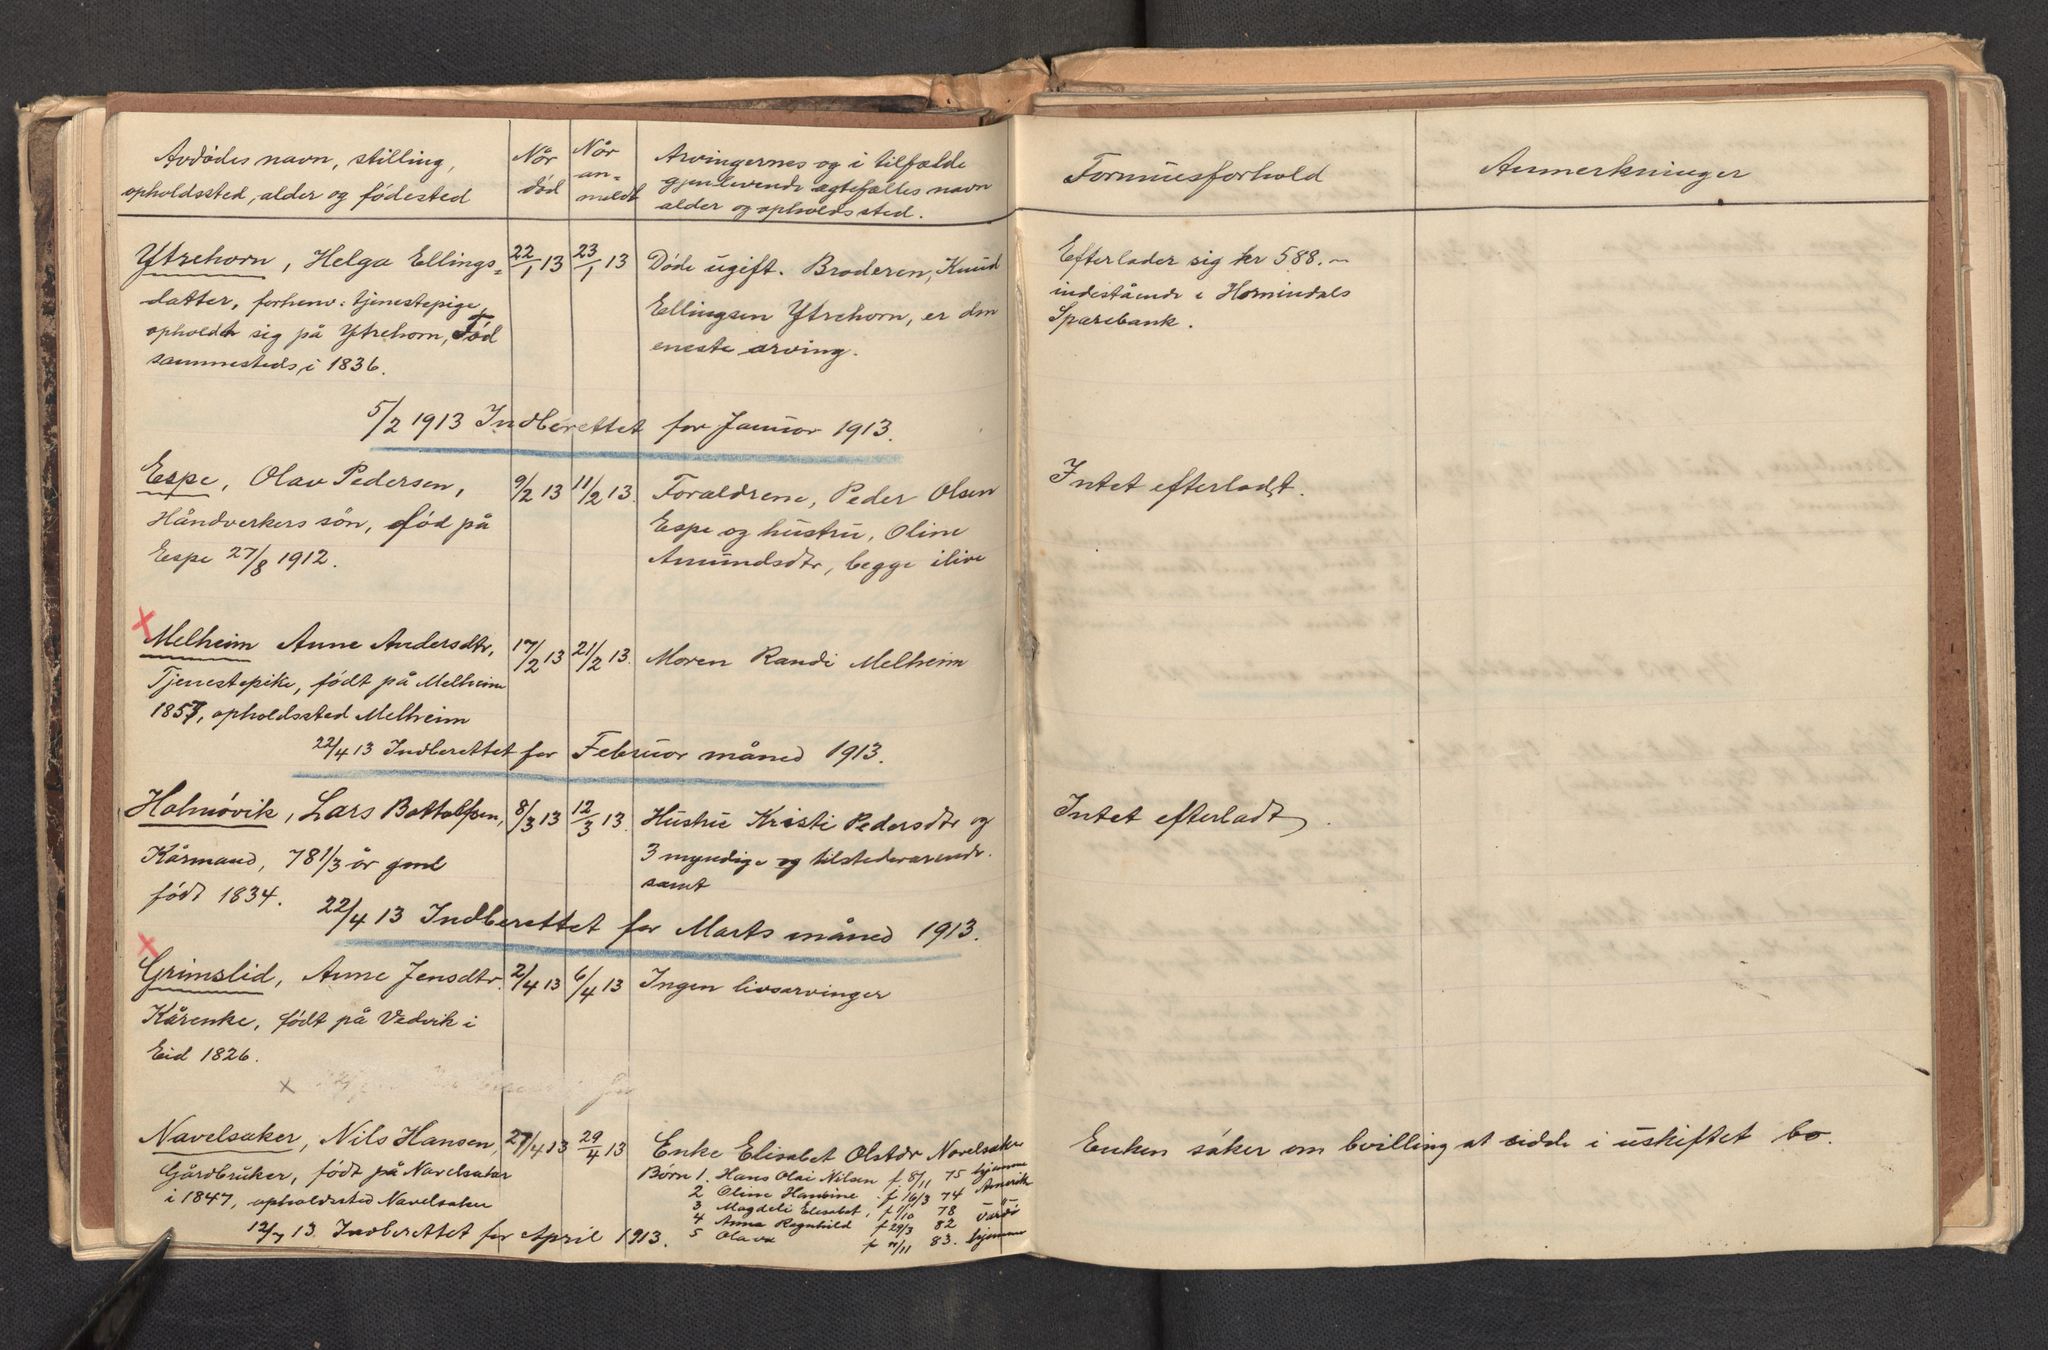 Avdødes navn, stilling,
opholdssted, alder og fødested
Når
død
Når
an-
meldt
Arvingernes og i tilfælde
gjenlevende ægtefælles navn
alder og opholdssted.
Formuesforhold
Anmerkninger
Ytrehorn, Helga Ellings-
datter, forhenv: tjenestepige,
opholdt sig på Ytrehorn, Fød
sammesteds, i 1836.
22/1 13
23/1 13
Døde ugift. Broderen, Knud
Ellingsen Ytrehorn, er den
eneste arving.
Efterlader sig kr 588.-
indestående i Hornindals
Sparebank.
5/2 1913 Indberettet for Januar 1913.
Espe, Olav Pedersen,
Håndverkers søn, født på
Espe 27/8 1912.
9/2 13
11/2 13.
Forældrene, Peder Olsen
Espe og hustru, Oline
Amundsdtr, begge ilive
Intet efterladt.
Melheim Anne Andersdtr,
Tjenestepike, født på Melheim
1857, opholdssted Melheim
17/2 13
21/2 13.
Moren Randi Melheim
22/4 13 Indberettet for Februar måned 1913.
Holmøvik, Lars Bottolfsen,
Kårmand, 78 1/3 år gml
født 1834.
8/3 13
12/3 13.
Hustru Kristi Pedersdtr og
3 myndige og tilstedeværende.
samt
Intet efterladt.
22/4 13 Indberettet for Marts måned 1913.
Grimslid, Anne Jensdtr.
Kårenke, født på Vedvik i
Eid 1826.
2/4 13
6/4 13
Ingen livsarvinger
Navelsaker, Nils Hansen,
Gårdbruker, født på Navelsaker
i 1847, opholdssted Navelsaker
27/4 13
29/4 13
Enke Elisabet Olsdtr Navelsaker
Børn 1. Hans Olai Nilsen f 8/11 75 hjemme
2 Oline Hansine f 16/3 74 Amerik
3 Magdeli Elisabet, f /10 78 -"-
4 Anna Ragnhild f 29/3 82 Vardø
5 Olava f /11 83. hjemme
Enken søker om bevilling at sidde i uskiftet bo.
12/7 13. Indberettet for April 1913.